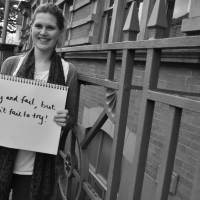 and fail, but
fail to try!